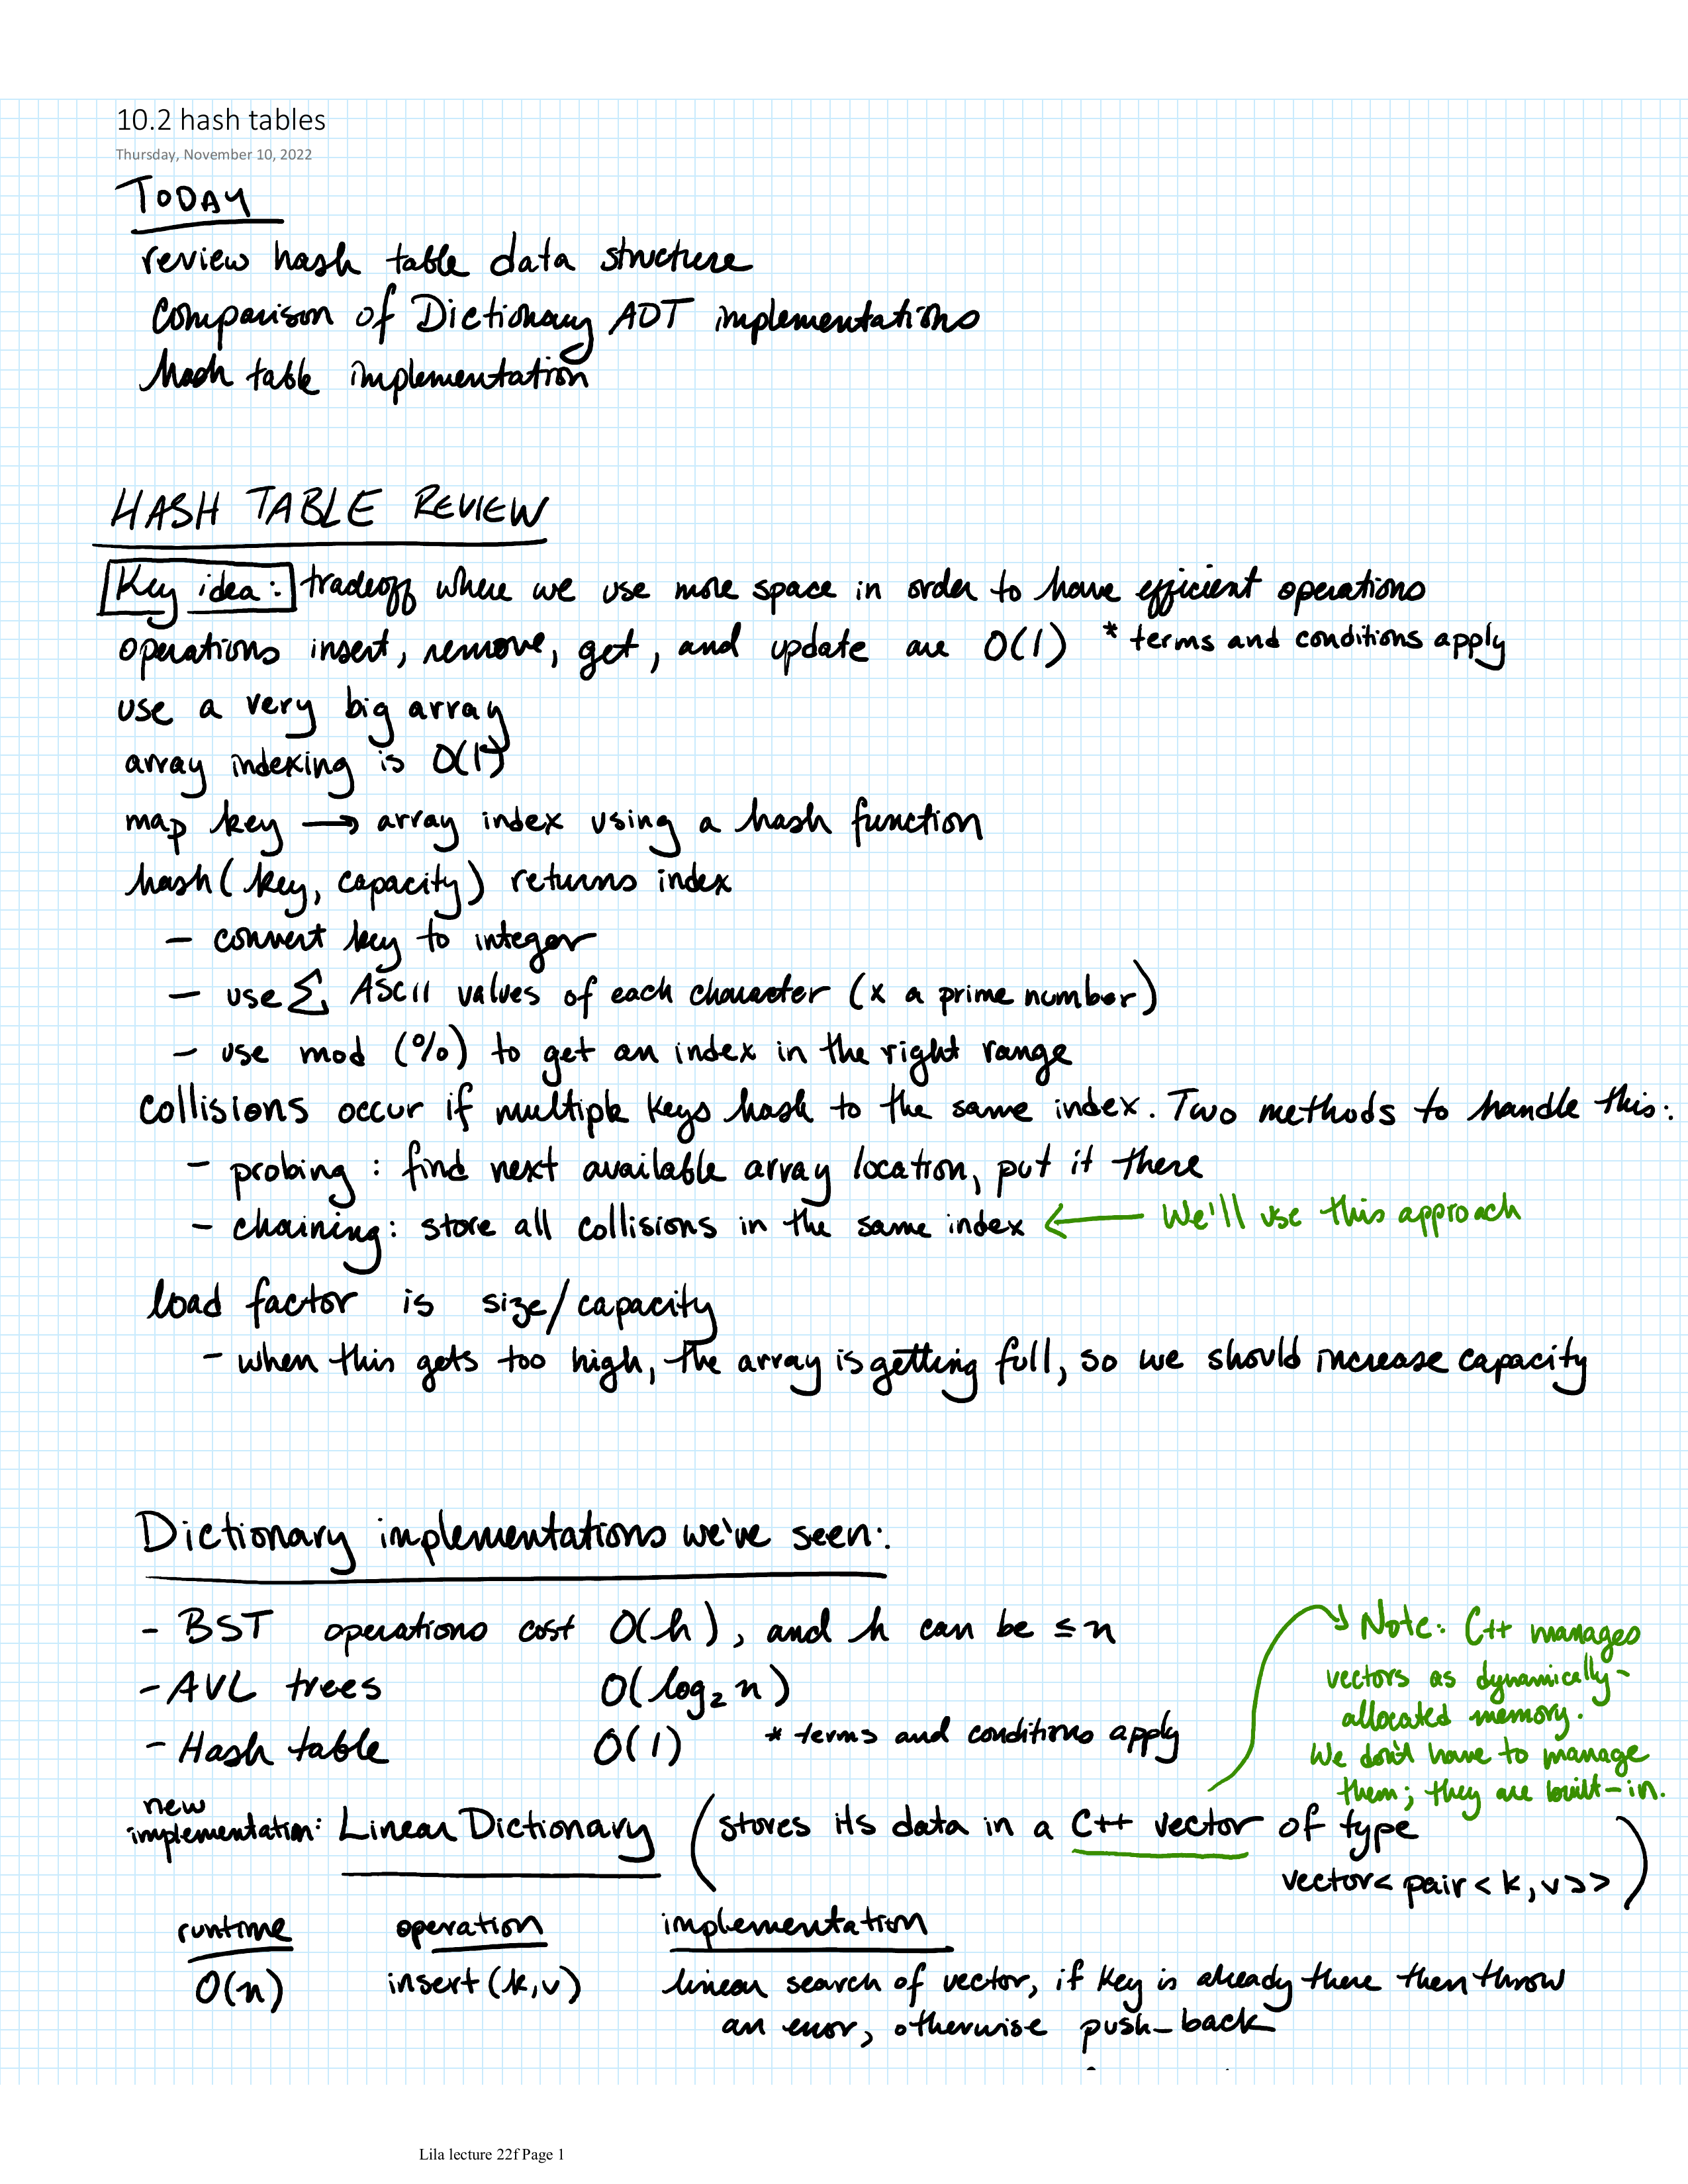 10.2 hash tables
Thursday, November 10, 2022
TODAY
review hash table data structure
Comparison of Dictionary ADT implementations
hash table implementation
HASH TABLE REVIEW
Key idea: tradeoff where we use more space in order to have efficient operations
operations insert, remove, get, and update are O(1) * terms and conditions apply
use a very big array
array indexing is O(1)
map key → array index using a hash function
hash(key, capacity) returns index
- convert key to integer
- use Σ ASCII values of each character (x a prime number)
- use mod (%) to get an index in the right range
collisions occur if multiple keys hash to the same index. Two methods to handle this:
- probing: find next available array location, put it there
- chaining: store all collisions in the same index ← We'll use this approach
load factor is size/capacity
- when this gets too high, the array is getting full, so we should increase capacity
Dictionary implementations we've seen:
- BST operations cost O(h), and h can be ≤ n
- AVL trees O(log₂ n)
- Hash table O(1) * terms and conditions apply
Note: C++ manages
vectors as dynamically-
allocated memory.
We don't have to manage
them; they are built-in.
new
implementation: Linear Dictionary (stores its data in a C++ vector of type
vector<pair<k,v>>)
runtime operation implementation
O(n) insert(k,v) linear search of vector, if key is already there then throw
an error, otherwise push_back
Lila lecture 22f Page 1